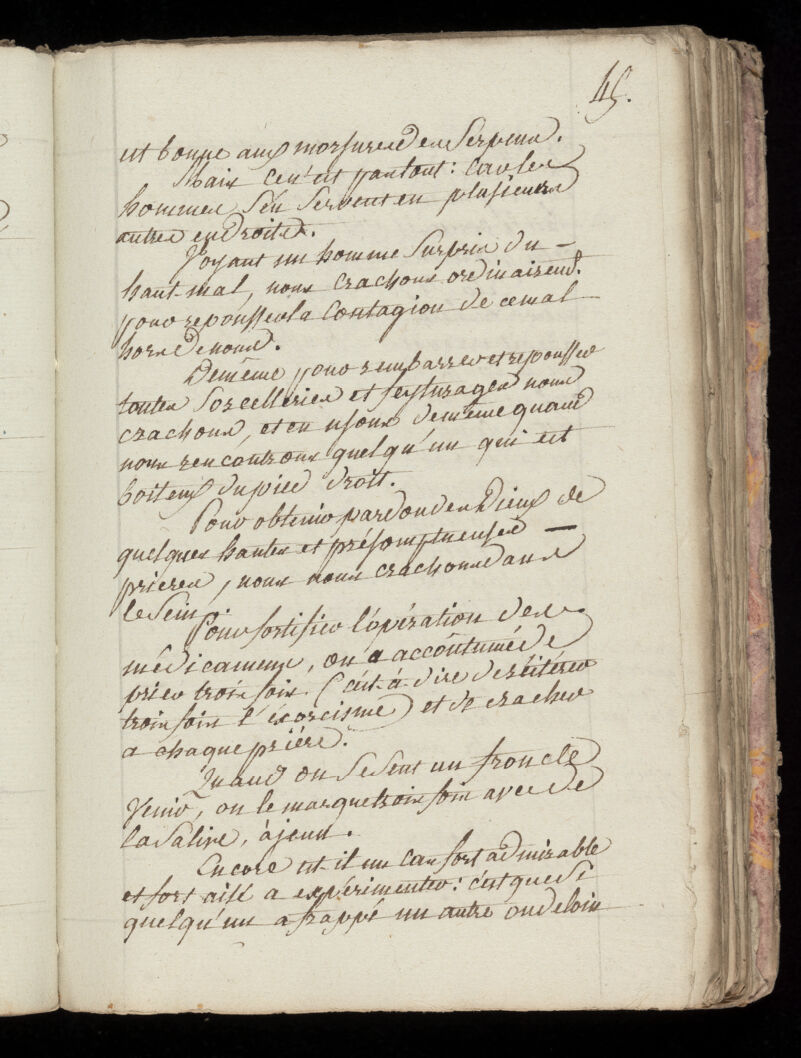 45.
est bonne aux morsures des Serpens.
Mais ce n'est pas tout : car les
hommes s'en servent en plusieurs
autres endroits.
Voyant un homme surpris du –
haut-mal, nous crachons ordinairemt.
pour repousser la contagion de ce mal
hors de nous.
De même pour rembarrer et repousser
toutes sorcelleries et nous
crachons, et en usons de même quand
nous rencontrons quelqu'un qui est
boiteux du pied droit.
Pour obtenir pardon des Dieux de
quelques hautes et présomptueuses —
prieres, nous nous crachons dans
le sein.
Pour fortifier l'opération des
médicamens, on a accoûtumé de
prier trois fois. (c'est-à-dire de réitérer
trois fois l'exorcisme) et de cracher
a chaque prière.
Quand on se sent un froncle
venir, on le marque trois fois avec de
la salive, à jeun.
Encore est-il un cas fort admirable
et fort aisé a expérimenter : c'est que si
quelqu'un a frappé un autre ou de loin